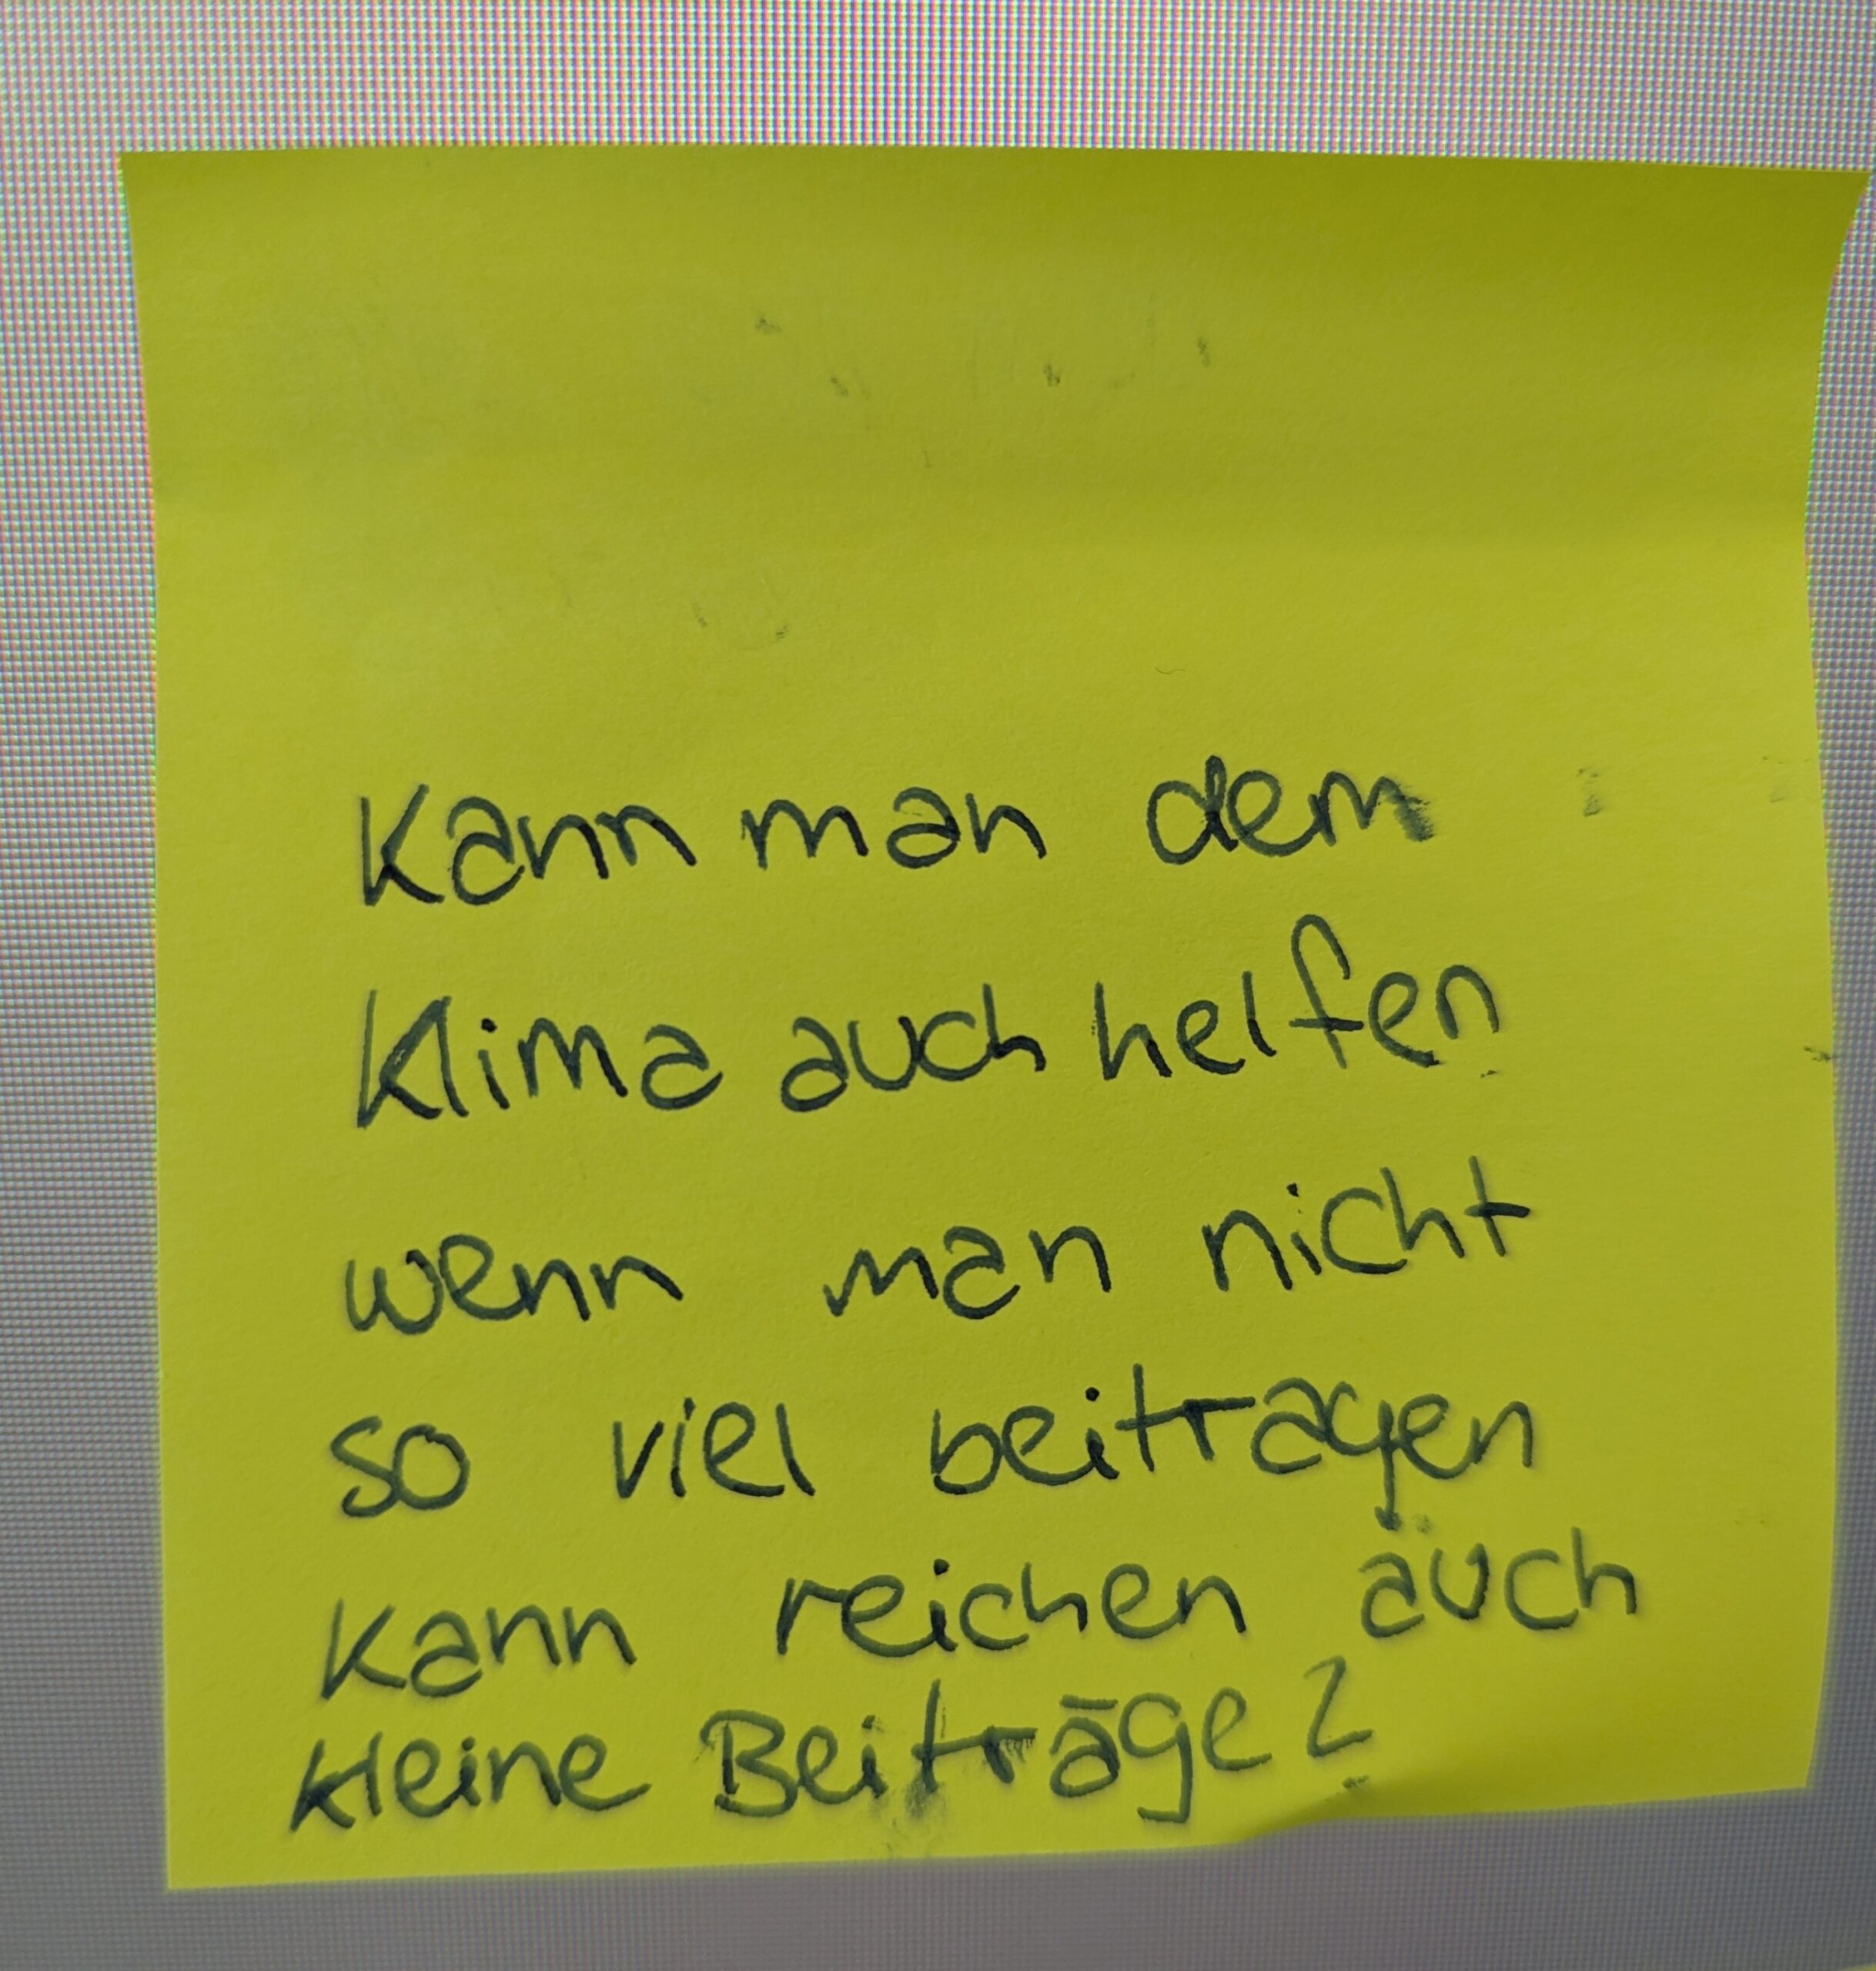 Kann man dem
Klima auch helfen
wenn man nicht
so viel beitragen
kann reichen auch
kleine Beiträge?